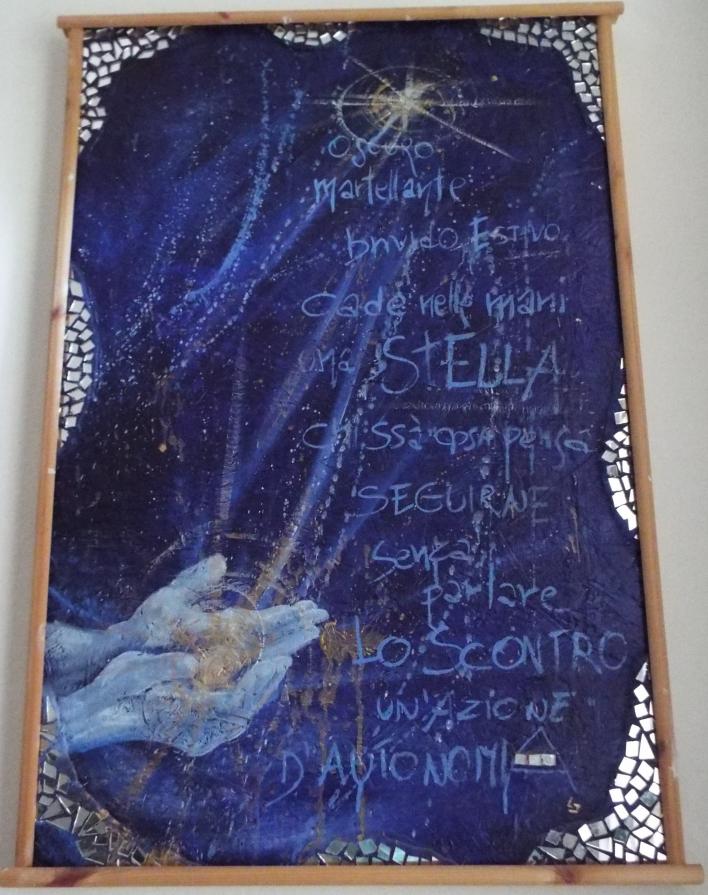 oscuro
martellante
brivido Estivo
cade nelle mani
una STELLA
chissà cosa pensa
SEGUIRNE
senza
parlare
LO SCONTRO
UN'AZIONE
D'AUTONOMIA